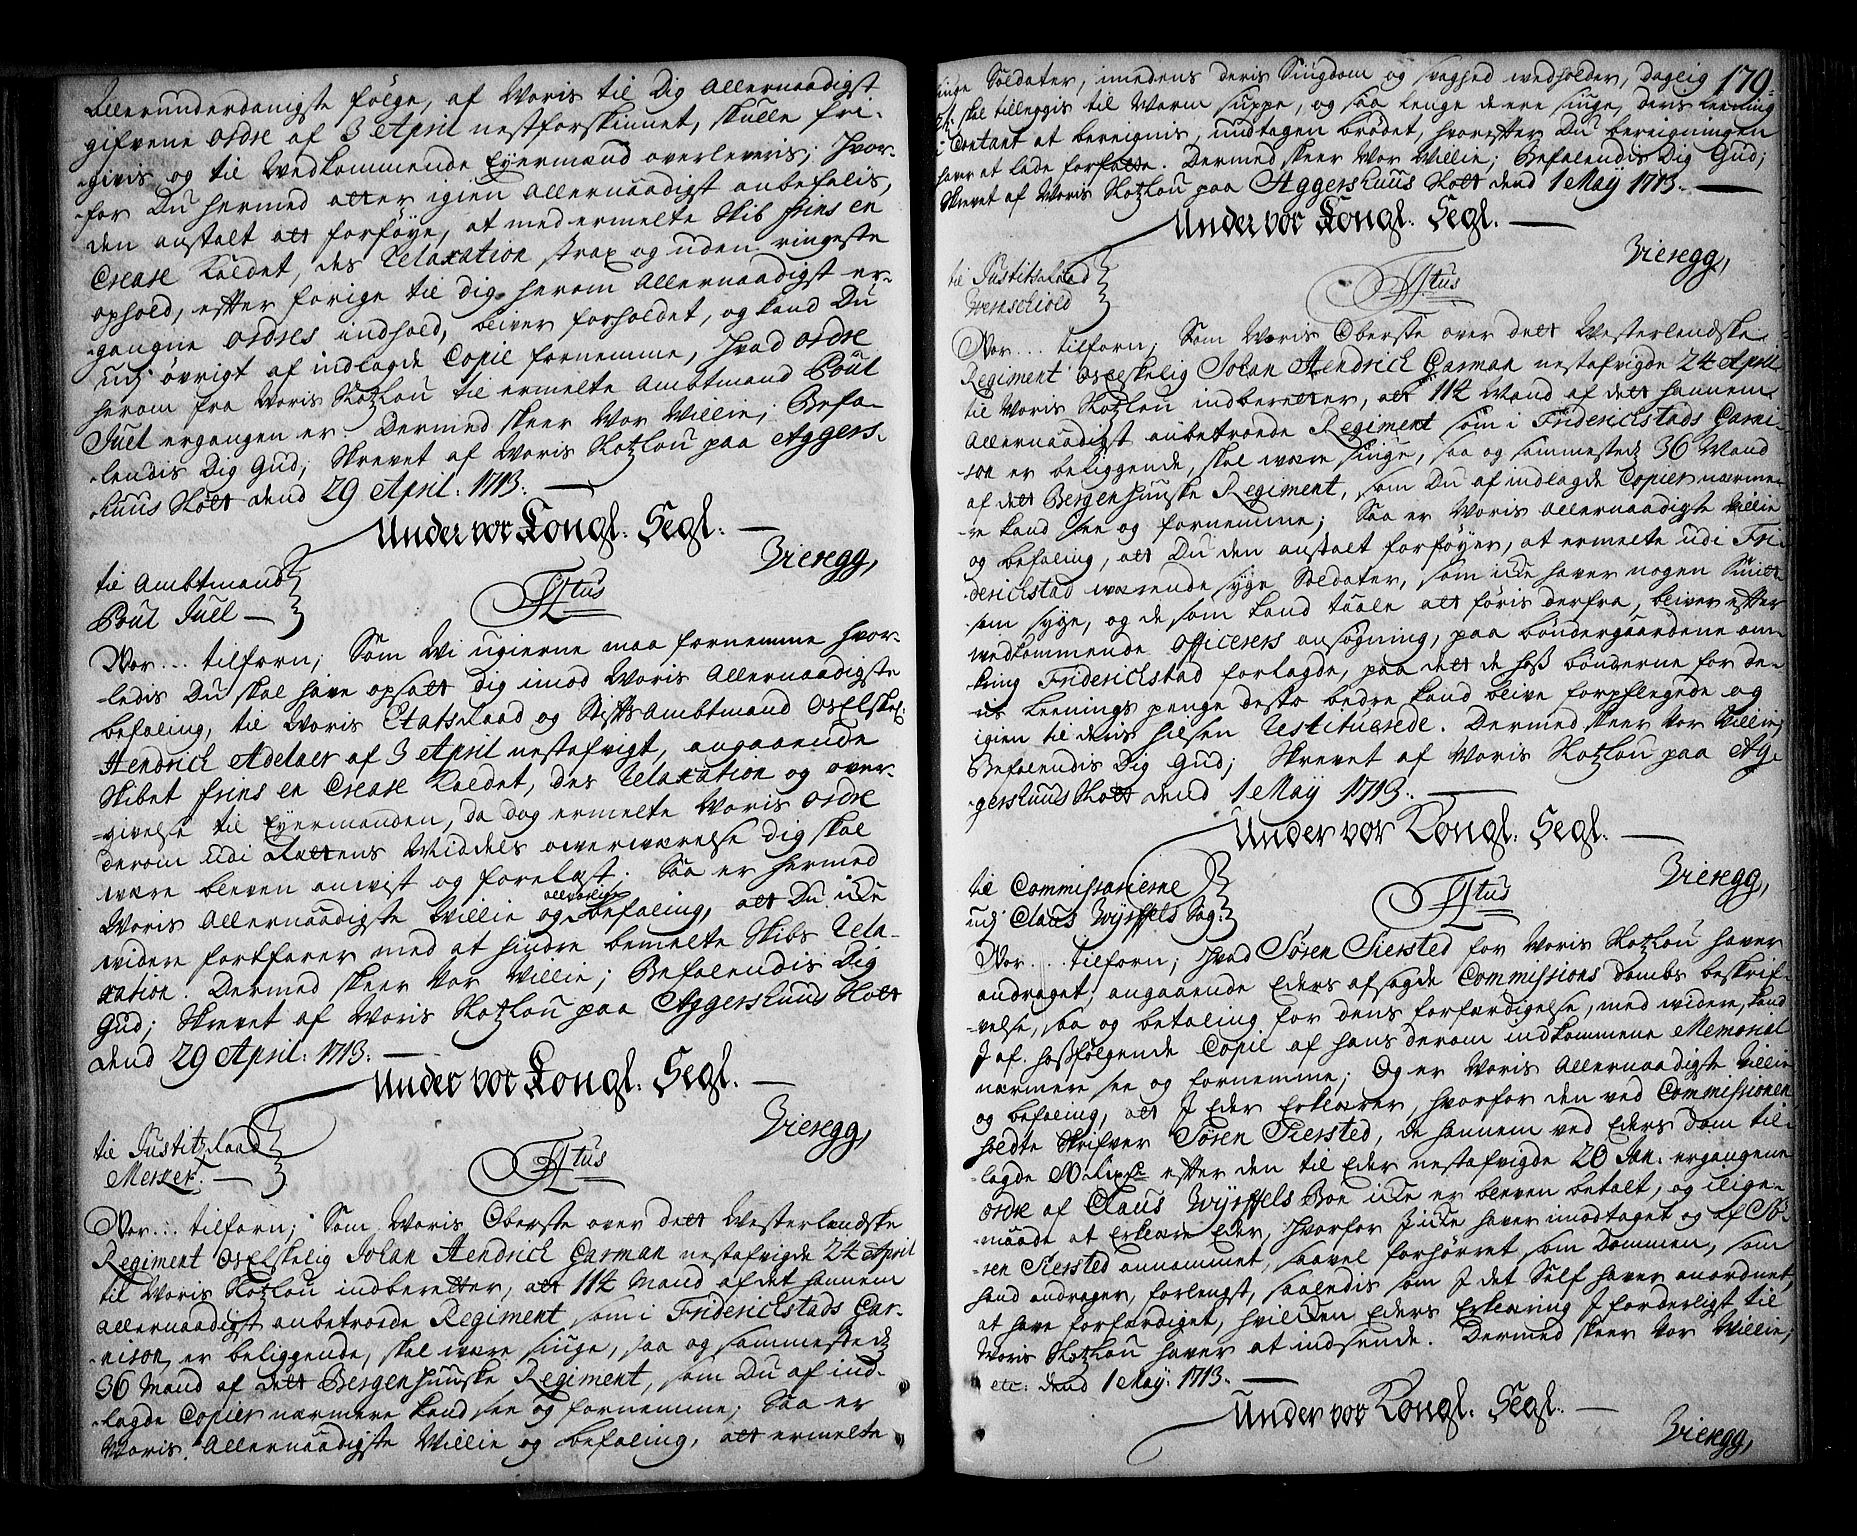 Allerunderdanigste følge, af Voris til Dig Allernaadigst
gifvene ordre af 3 April nestforskinnet, skulle fri-
-givis og til Vedkommende Eyermænd overleveris; Hvor-
-for Du hermed atter igien Allernaadigst anbefalis,
den anstalt att forføye, at med ermelte Skib Prins en
Crease kaldet, des Relaxation strax og uden ringeste
ophold, efter forige til dig herom Allernaadigst er-
-gangne ordres indhold, bliver forholdet, og kand Du
udj øvrigt af indlagde Copie fornemme, Hvad ordre
herom fra Voris Slotzlou til ermelte Ambtmand Poul
Juel ergangen er. Dermed skeer Vor Villie; Befa-
-lendis Dig Gud; Skrevet af Voris Slotzlou paa Aggers-
-huus Slott dend 29 April. 1713.
Under vor Kongl. Segl.
Vieregg,
til Ambtmand
Poul Juel
Tjtus
Vor... tilforn; Som Vi ugierne maa fornemme hvor-
-ledis Du skal have opsatt dig imod Voris Allernaadigste
befaling, til Voris Etatsraad og Stiftsambtmand Oselskel:
Hendrich Adelaer af 3 April nestafvigt, angaaende
Skibet Prins en Crease kaldet, des Relaxation og over-
-givelse til Eyermanden, da dog ermelte Voris ordre
derom udi Rættens Middels overværelse dig skal
være bleven anvist og forelæst. Saa er hermed
Voris Allernaadigste Villie og alvorlige befaling, att Du icke
videre fortfarer med at hindre bemelte Skibs Rela-
xation. Dermed skeer Vor Villie; Befalendis Dig
Gud; Skrevet af Voris Slotzlou paa Aggershuus Slott
dend 29 April. 1713.
Under vor Kongl. Segl.
Vieregg,
til Justitzraad
Merker.
Tjtus
Vor... tilforn; Som Voris Oberste over dett Vesterlendske
Regiment Oselskelig Johan Hendrich Carman nestafvigde 24 April
til Voris Slotzlou indberetter, att 114 Mand af det hannem
allernaadigst anbetroede Regiment som i Friderichstads Gar-
-nison er beliggende, skal være siuge, saa og sammestedz
36 Mand af dett Bergenhuuske Regiment, som Du af ind-
-lagde Copier nærmere kand see og fornemme; Saa er
Voris Allernaadigste Villie og befaling, att ermelte
179.
siuge Soldater, imedens deris Siugdom og svaghed vedholder, daglig
skal tilleggis til Varm suppe, og saa lenge de ere siuge, deris Leening
i Contant at bereignis, undtagen brødet, hvorefter Du bereigningen
haver at lade forfatte. Dermed skeer Vor Villie; Befalendis Dig Gud;
Skrevet af Voris Slotzlou paa Aggershuus Slott dend 1 May 1713.
Under vor Kongl. Segl.
Vieregg,
til Justitsraad
Wernschiold
Tjtus
Vor... tilforn; Som Voris Oberste over dett Vesterlendske
Regiment Oselskelig Johan Hendrich Carman nestafvigde 24 April
til Voris Slotzlou indberetter, att 114 Mand af dett hannem
Allernaadigst anbetroede Regiment som i Friderichstads Garni-
-son er beliggende, skal være siuge, saa og sammestedz 36 Mand
af dett Bergenhuuske Regiment, som Du af indlagde Copier nærme-
-re kand see og fornemme; Saa er Voris Allernaadigste Villie
og befaling, att Du den anstalt forføyer, at ermelte udi Fri-
-derichstad værende syge Soldater, som icke haver nogen Smitt-
som syge, og de som kand taale att føris derfra, bliver efter
vedkommende officerers ansøgning, paa bøndergaardene om-
-kring Friderichstad forlagde, paa dett de hoss bønderne for de-
-is Leenings penge desto bedre kand blive forpflegede og
igien til deris hilsen restituerede. Dermed skeer Vor Villie;
Befalendis Dig Gud; Skrevet af Voris Slotzlou paa Ag-
-gershuus Slott dend 1 May 1713.
Under vor Kongl. Segl.
Vieregg,
til Commissarierne
udj Claus Wyrffels Sag.
Tjtus
Vor... tilforn; Hvad Søren Siersted for Voris Slotzlou haver
andraget, angaaende Eders afsagde Commissions dombs beskrif-
-velse, saa og betaling for dens forfærdigelse, med videre, kand
J af hossfølgende Copie af hans derom indkommene Memorial
nærmere see og fornemme; Og er Voris Allernaadigste Villie
og befaling, att J Eder Erklærer, hvorfor den ved Commissionen
holdte Skrifver Søren Siersted, de hannem ved Eders dom til-
-lagde 80 Rixdr efter den til Eder nestafvigde 20 Jan. ergangene
ordre af Claus Wyrffels Boe icke er bleven betalt, og lige-
-maade at Erklære Eder, hvorfor J icke haver imodtaget og af Sø-
-ren Siersted annammet, saavel forhørret, som Dommen, som
hand andrager, forlengst, saaledis som J det Self haver anordnet,
at have forfærdiget, hvilcken Eders Erklæring J forderligst til
Voris Slotzlou haver at indsende. Dermed skeer Vor Villie;
etc: dend 1 May. 1713.
Under vor Kongl. Segl.
Vieregg,